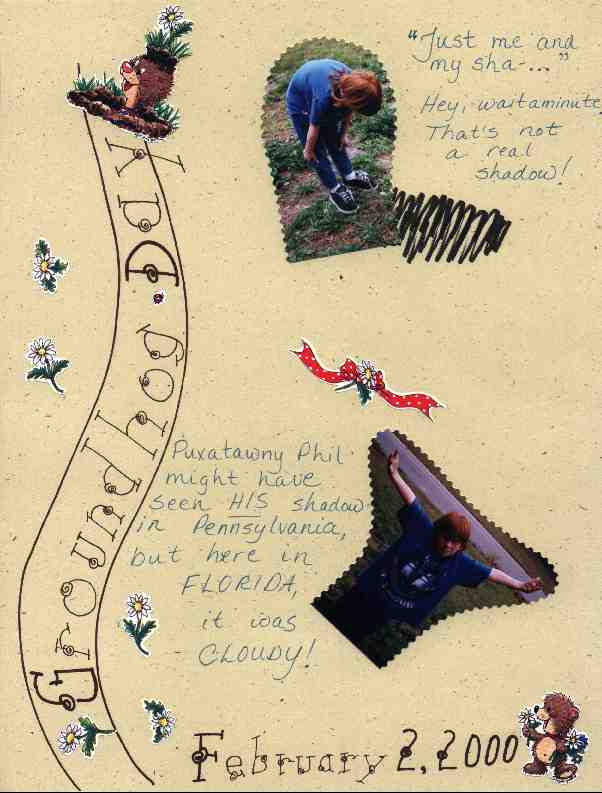 Groundhog Day
"Just me and
my sha-..."
Hey, waitaminute,
That's not
a real
shadow!
Puxatawny Phil
might have
seen HIS shadow
in Pennsylvania,
but here in
FLORIDA,
it was
CLOUDY!
February 2, 2000